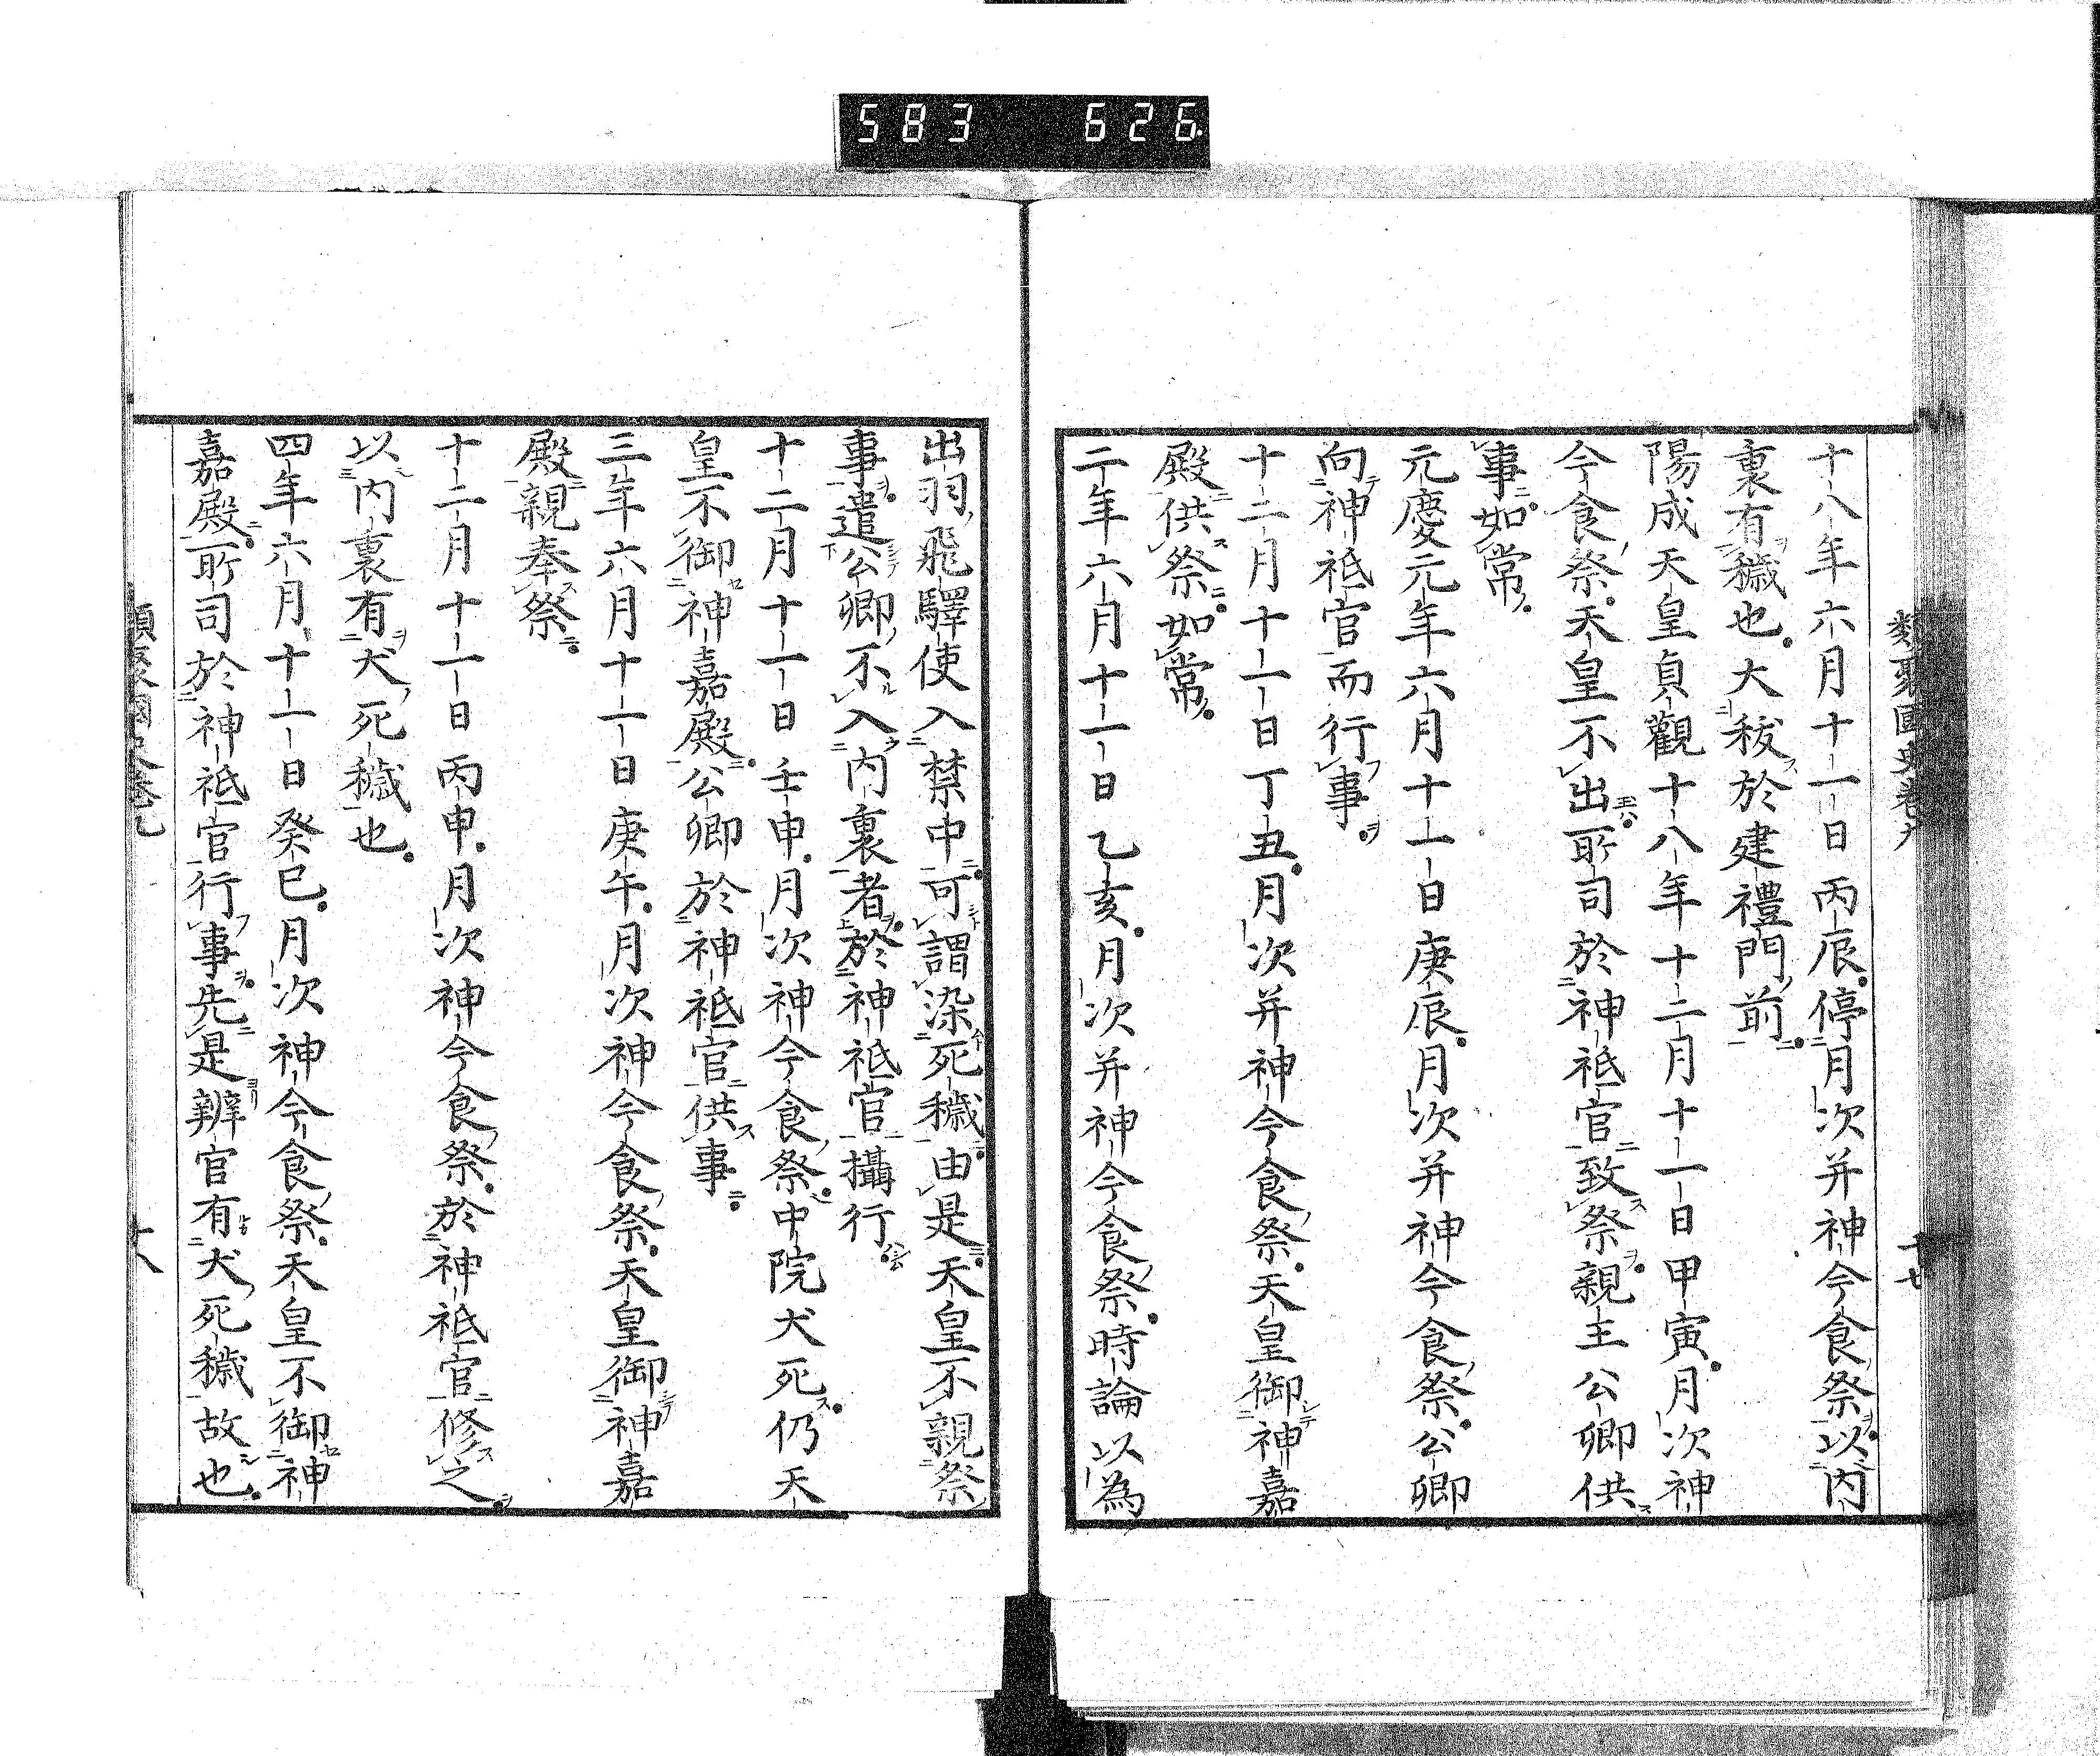 583 626
類聚國史卷九
十七
十八年六月十一日丙辰停月次并神今食祭以内
裏有穢也大秡於建禮門前
陽成天皇貞觀十八年十二月十一日甲寅月次神
今食祭天皇不出所司於神祗官致祭親王公卿供
事如常
元慶元年六月十一日庚辰月次并神今食祭公卿
向神祗官而行事
十二月十一日丁丑月次并神今食祭天皇御神嘉
殿供祭如常
二年六月十一日乙亥月次并神今食祭時論以為
出羽飛驛使入禁中可謂染死穢由是天皇不親祭
事遣公卿不入内裏者於神祗官攝行
十二月十一日壬申月次神今食祭中院犬死仍天
皇不御神嘉殿公卿於神祗官供事
三年六月十一日庚午月次神今食祭天皇御神嘉
殿親奉祭
十二月十一日丙申月次神今食祭於神祗官修之
以内裏有犬死穢也
四年六月十一日癸巳月次神今食祭天皇不御神
嘉殿所司於神祗官行事先是辨官有犬死穢故也
類聚國史卷九